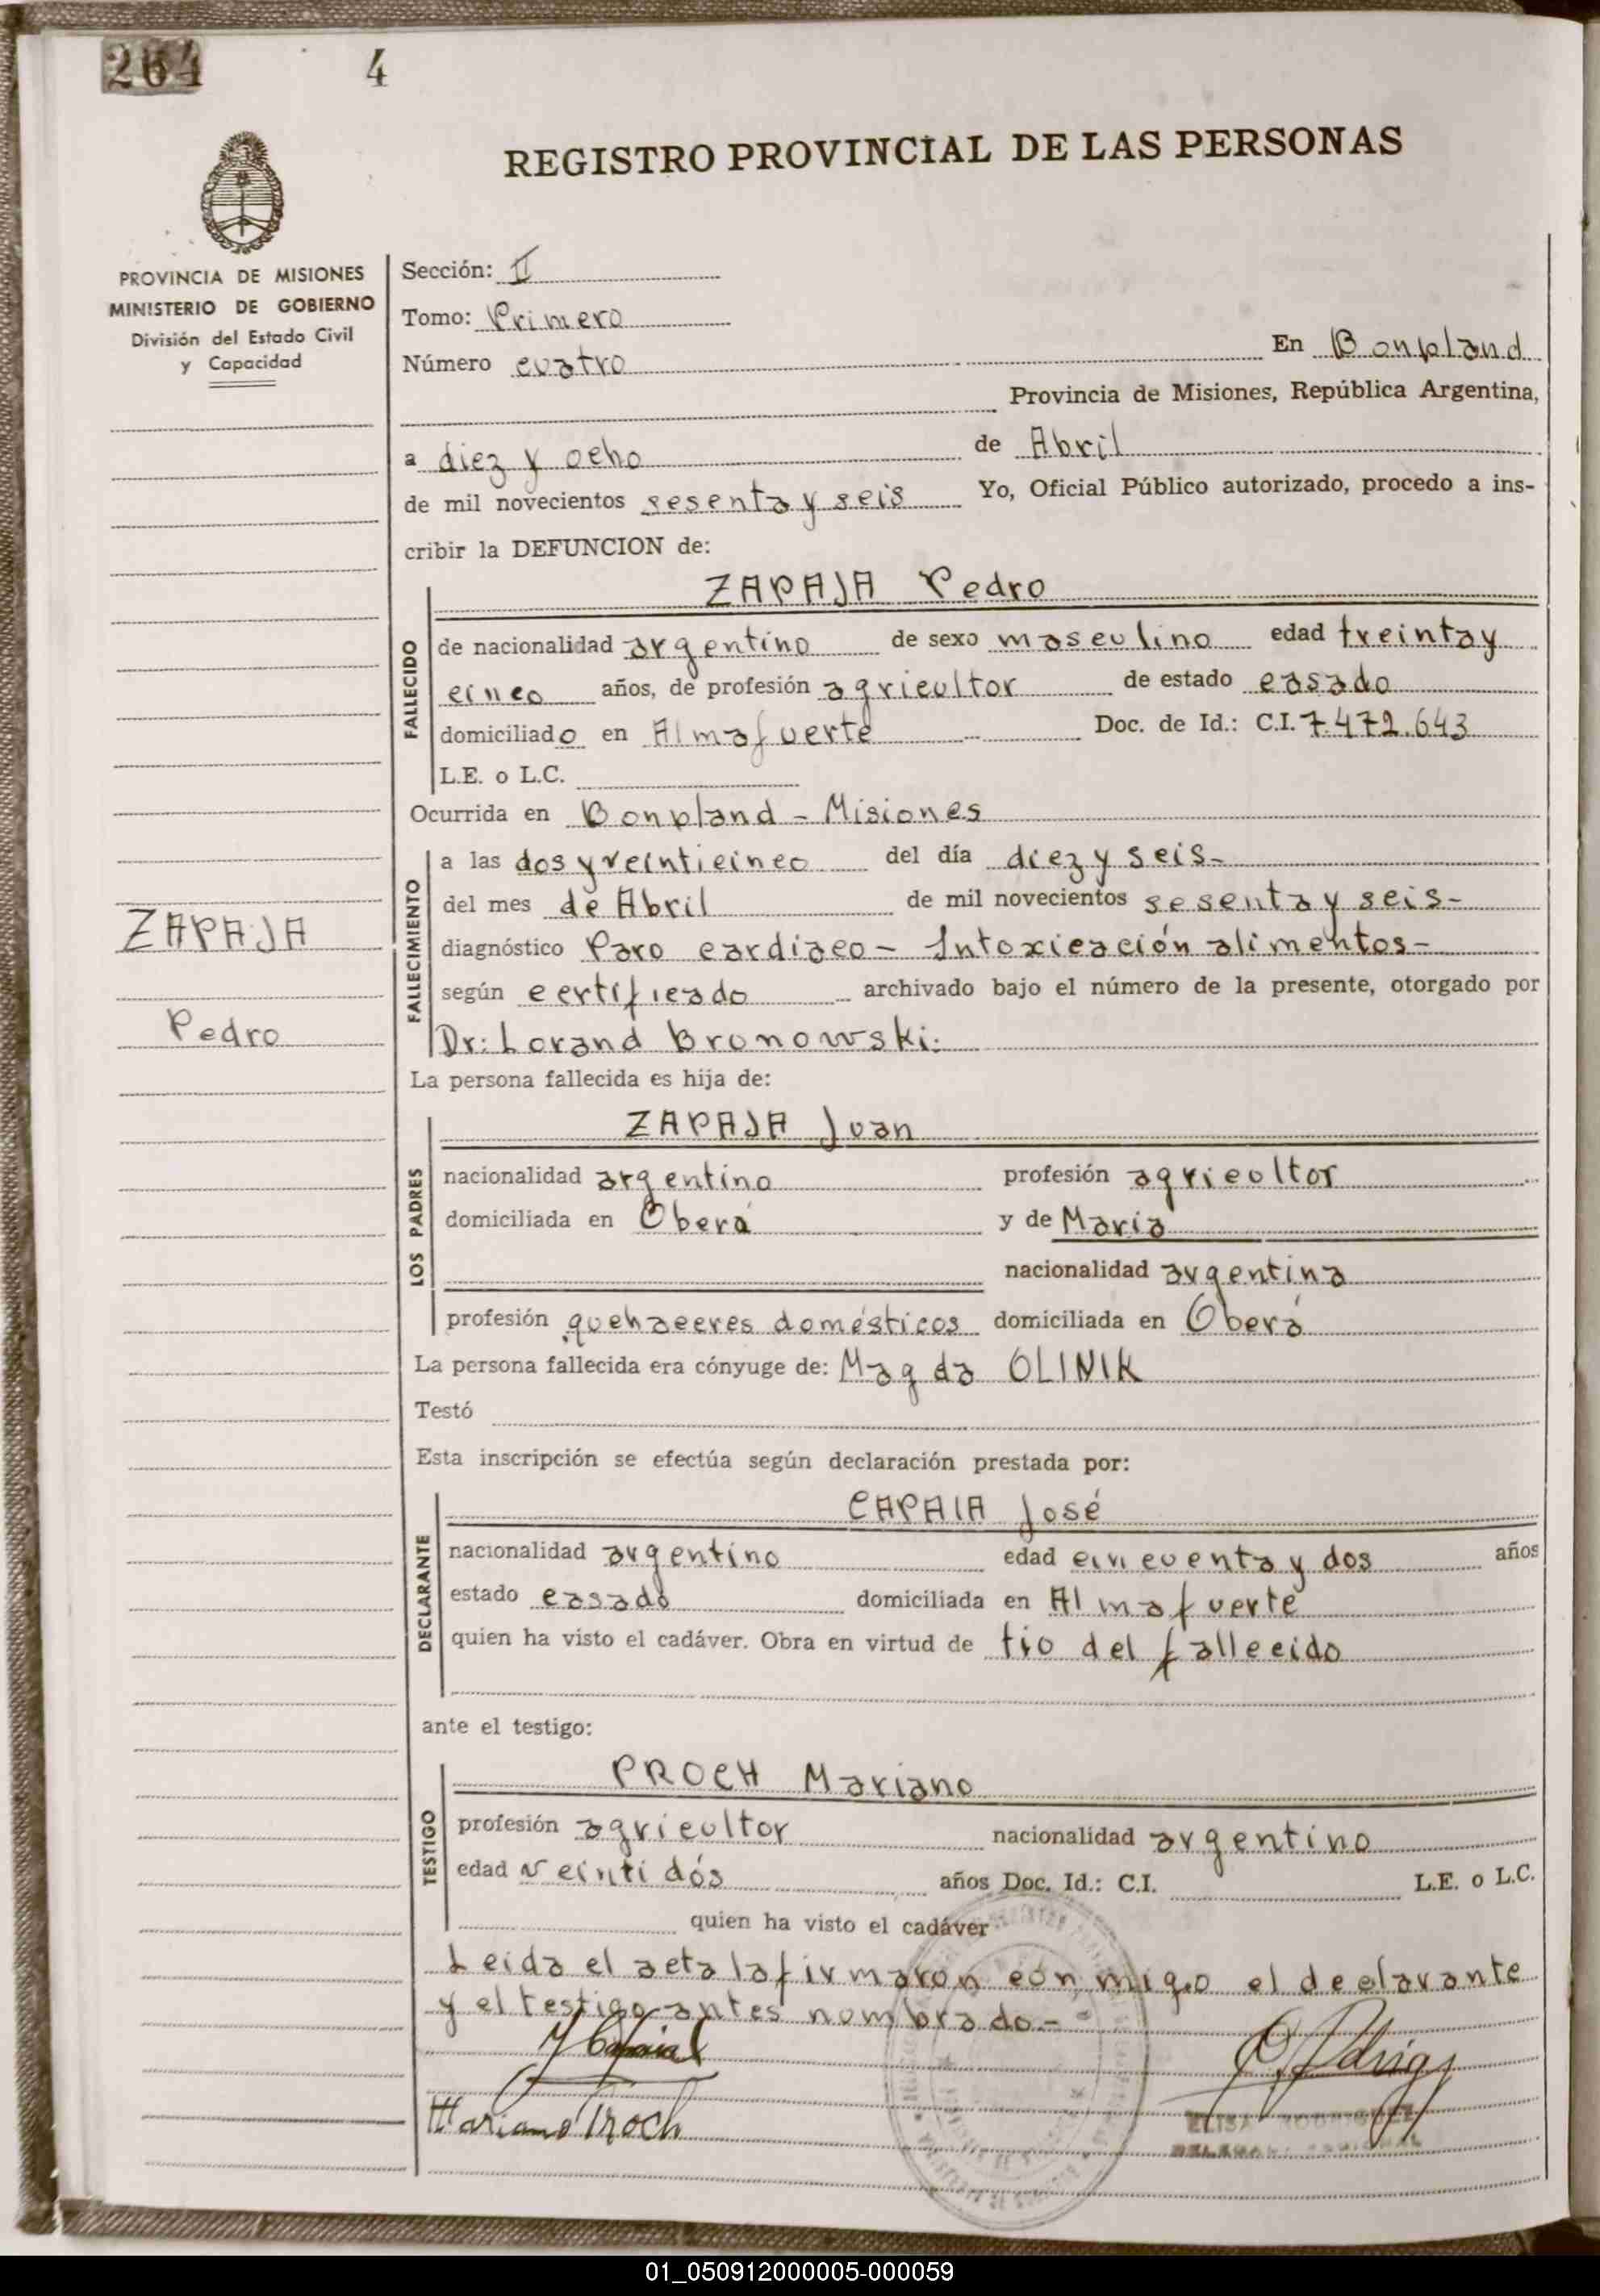 264 4
REGISTRO PROVINCIAL DE LAS PERSONAS
PROVINCIA DE MISIONES
MINISTERIO DE GOBIERNO
División del Estado Civil
y Capacidad
Sección: II
Tomo: Primero
Número cuatro En Bonpland
Provincia de Misiones, República Argentina,
a diez y ocho de Abril
de mil novecientos sesenta y seis Yo, Oficial Público autorizado, procedo a ins-
cribir la DEFUNCION de:
ZAPAJA Pedro
FALLECIDO
de nacionalidad argentino de sexo masculino edad treinta y
cinco años, de profesión agricultor de estado casado
domiciliado en Almafuerte Doc. de Id.: C.I. 7.472.643
L.E. o L.C.
Ocurrida en Bonpland - Misiones
FALLECIMIENTO
a las dos y veinticinco del día diez y seis-
del mes de Abril de mil novecientos sesenta y seis-
diagnóstico Paro cardiaco - Intoxicación alimentos-
según certificado archivado bajo el número de la presente, otorgado por
Dr: Lorand Bronowski.
ZAPAJA
Pedro
La persona fallecida es hija de:
ZAPAJA Juan
LOS PADRES
nacionalidad argentino profesión agricultor
domiciliada en Oberá y de Maria
nacionalidad argentina
profesión quehaceres domésticos domiciliada en Oberá
La persona fallecida era cónyuge de: Magda OLINIK
Testó
Esta inscripción se efectúa según declaración prestada por:
CAPAIA José
DECLARANTE
nacionalidad argentino edad cincuenta y dos años
estado casado domiciliada en Almafuerte
quien ha visto el cadáver. Obra en virtud de tio del fallecido
ante el testigo:
PROCH Mariano
TESTIGO
profesión agricultor nacionalidad argentino
edad veinti dós años Doc. Id.: C.I. L.E. o L.C.
quien ha visto el cadáver
Leida el acta la firmaron conmigo el declarante
y el testigo antes nombrado.-
Mariano Proch
ELISA RODRIGUEZ
01_050912000005-000059